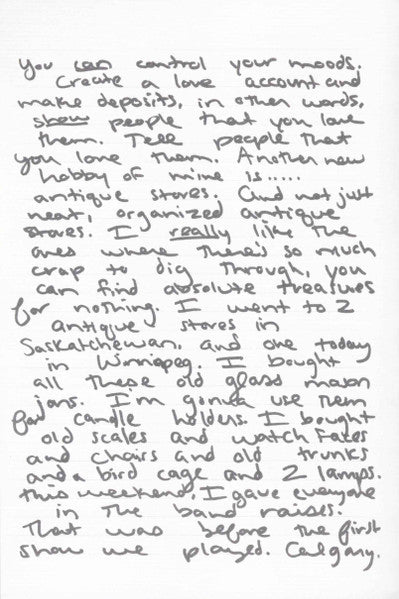 You can control your moods.
Create a love account and
make deposits, in other words,
show people that you love
them. Tell people that
you love them. Another new
hobby of mine is.....
antique stores. And not just
neat, organized antique
stores. I really like the
ones where there's so much
crap to dig through, you
can find absolute treasures
for nothing. I went to 2
antique stores in
Saskatchewan, and one today
in Winnipeg. I bought
all these old glass mason
jars. I'm gonna use them
for candle holders. I bought
old scales and watch faces
and chairs and old trunks
and a bird cage and 2 lamps.
this weekend, I gave everyone
in the band raises.
That was before the first
show we played. Calgary.